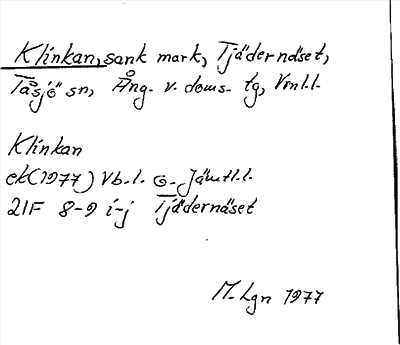 Klinkan, sank mark, Tjädernäset,
Tåsjö sn, Ång. v. doms. tg, Vrnl.l.
Klinkan
ek(1977) Vb.l. o. Jämtl.l.
21F 8-9 i-j Tjädernäset
M. Lgn 1977